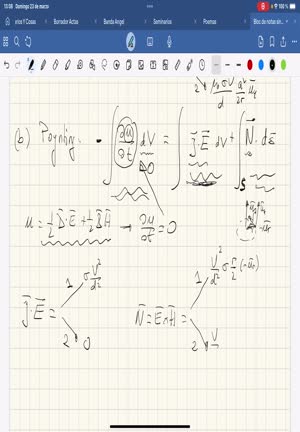 11:08 Domingo 23 de marzo
100 %
vios Y Cosas
Borrador Actas
Banda Angel
Seminarios
Poemas
Bloc de notas sin...
2 μ₀ σV/d a²/2r ū_φ
(b) Poynting. - ∫ ∂u/∂t dV = ∫ J̄·Ē dV + ∫_S N̄·ds̄
0
u = 1/2 D̄·Ē + 1/2 B̄·H̄ → ∂u/∂t = 0
J̄·Ē =
1 σ V²/d²
2 0
N̄ = Ē∧H̄ =
1 V²/d² σ r/2 (-ū_r)
2 V/